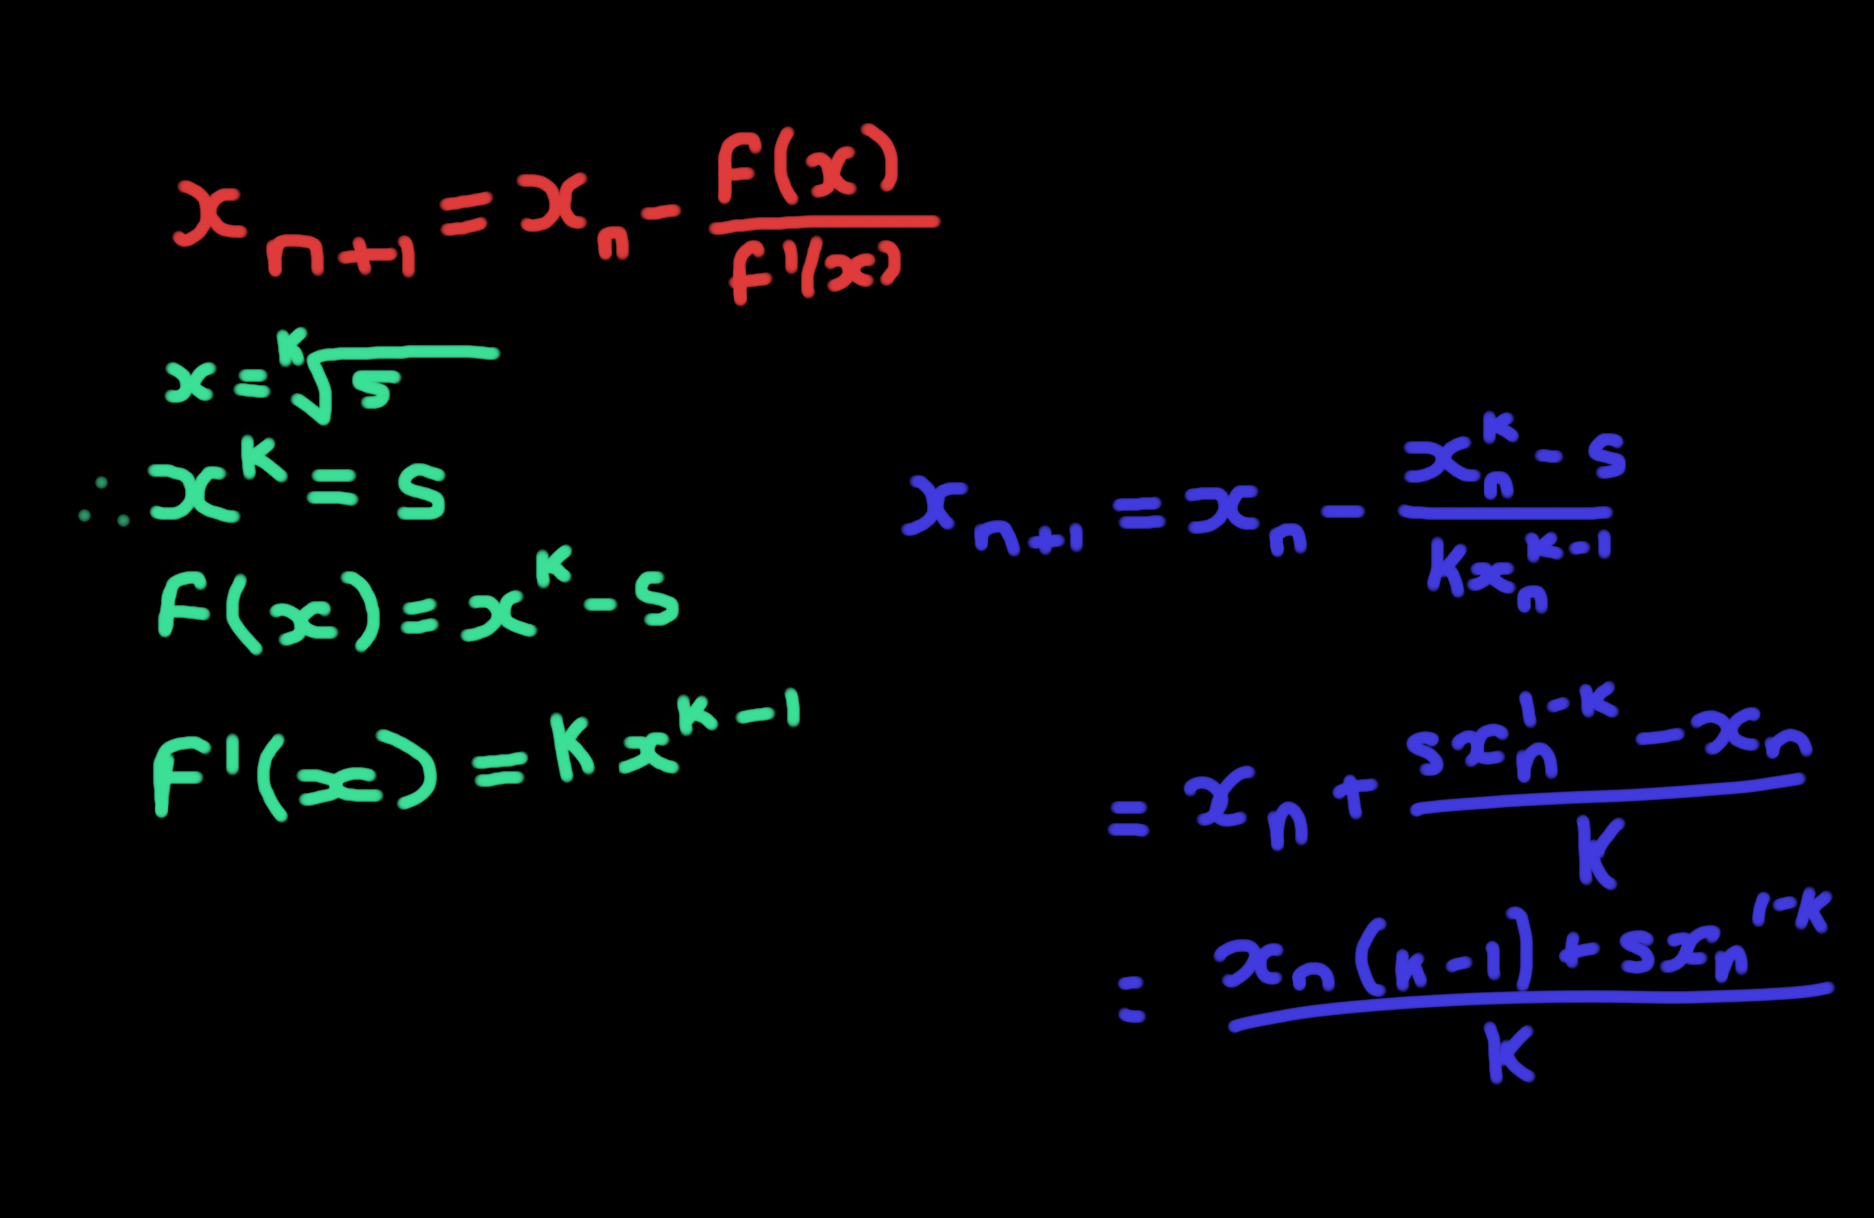 x_{n+1} = x_n - \frac{f(x)}{f'(x)}
x = \sqrt[k]{s}
∴ x^k = s
f(x) = x^k - s
f'(x) = kx^{k-1}
x_{n+1} = x_n - \frac{x_n^k - s}{kx_n^{k-1}}
= x_n + \frac{sx_n^{1-k} - x_n}{k}
= \frac{x_n(k-1) + sx_n^{1-k}}{k}